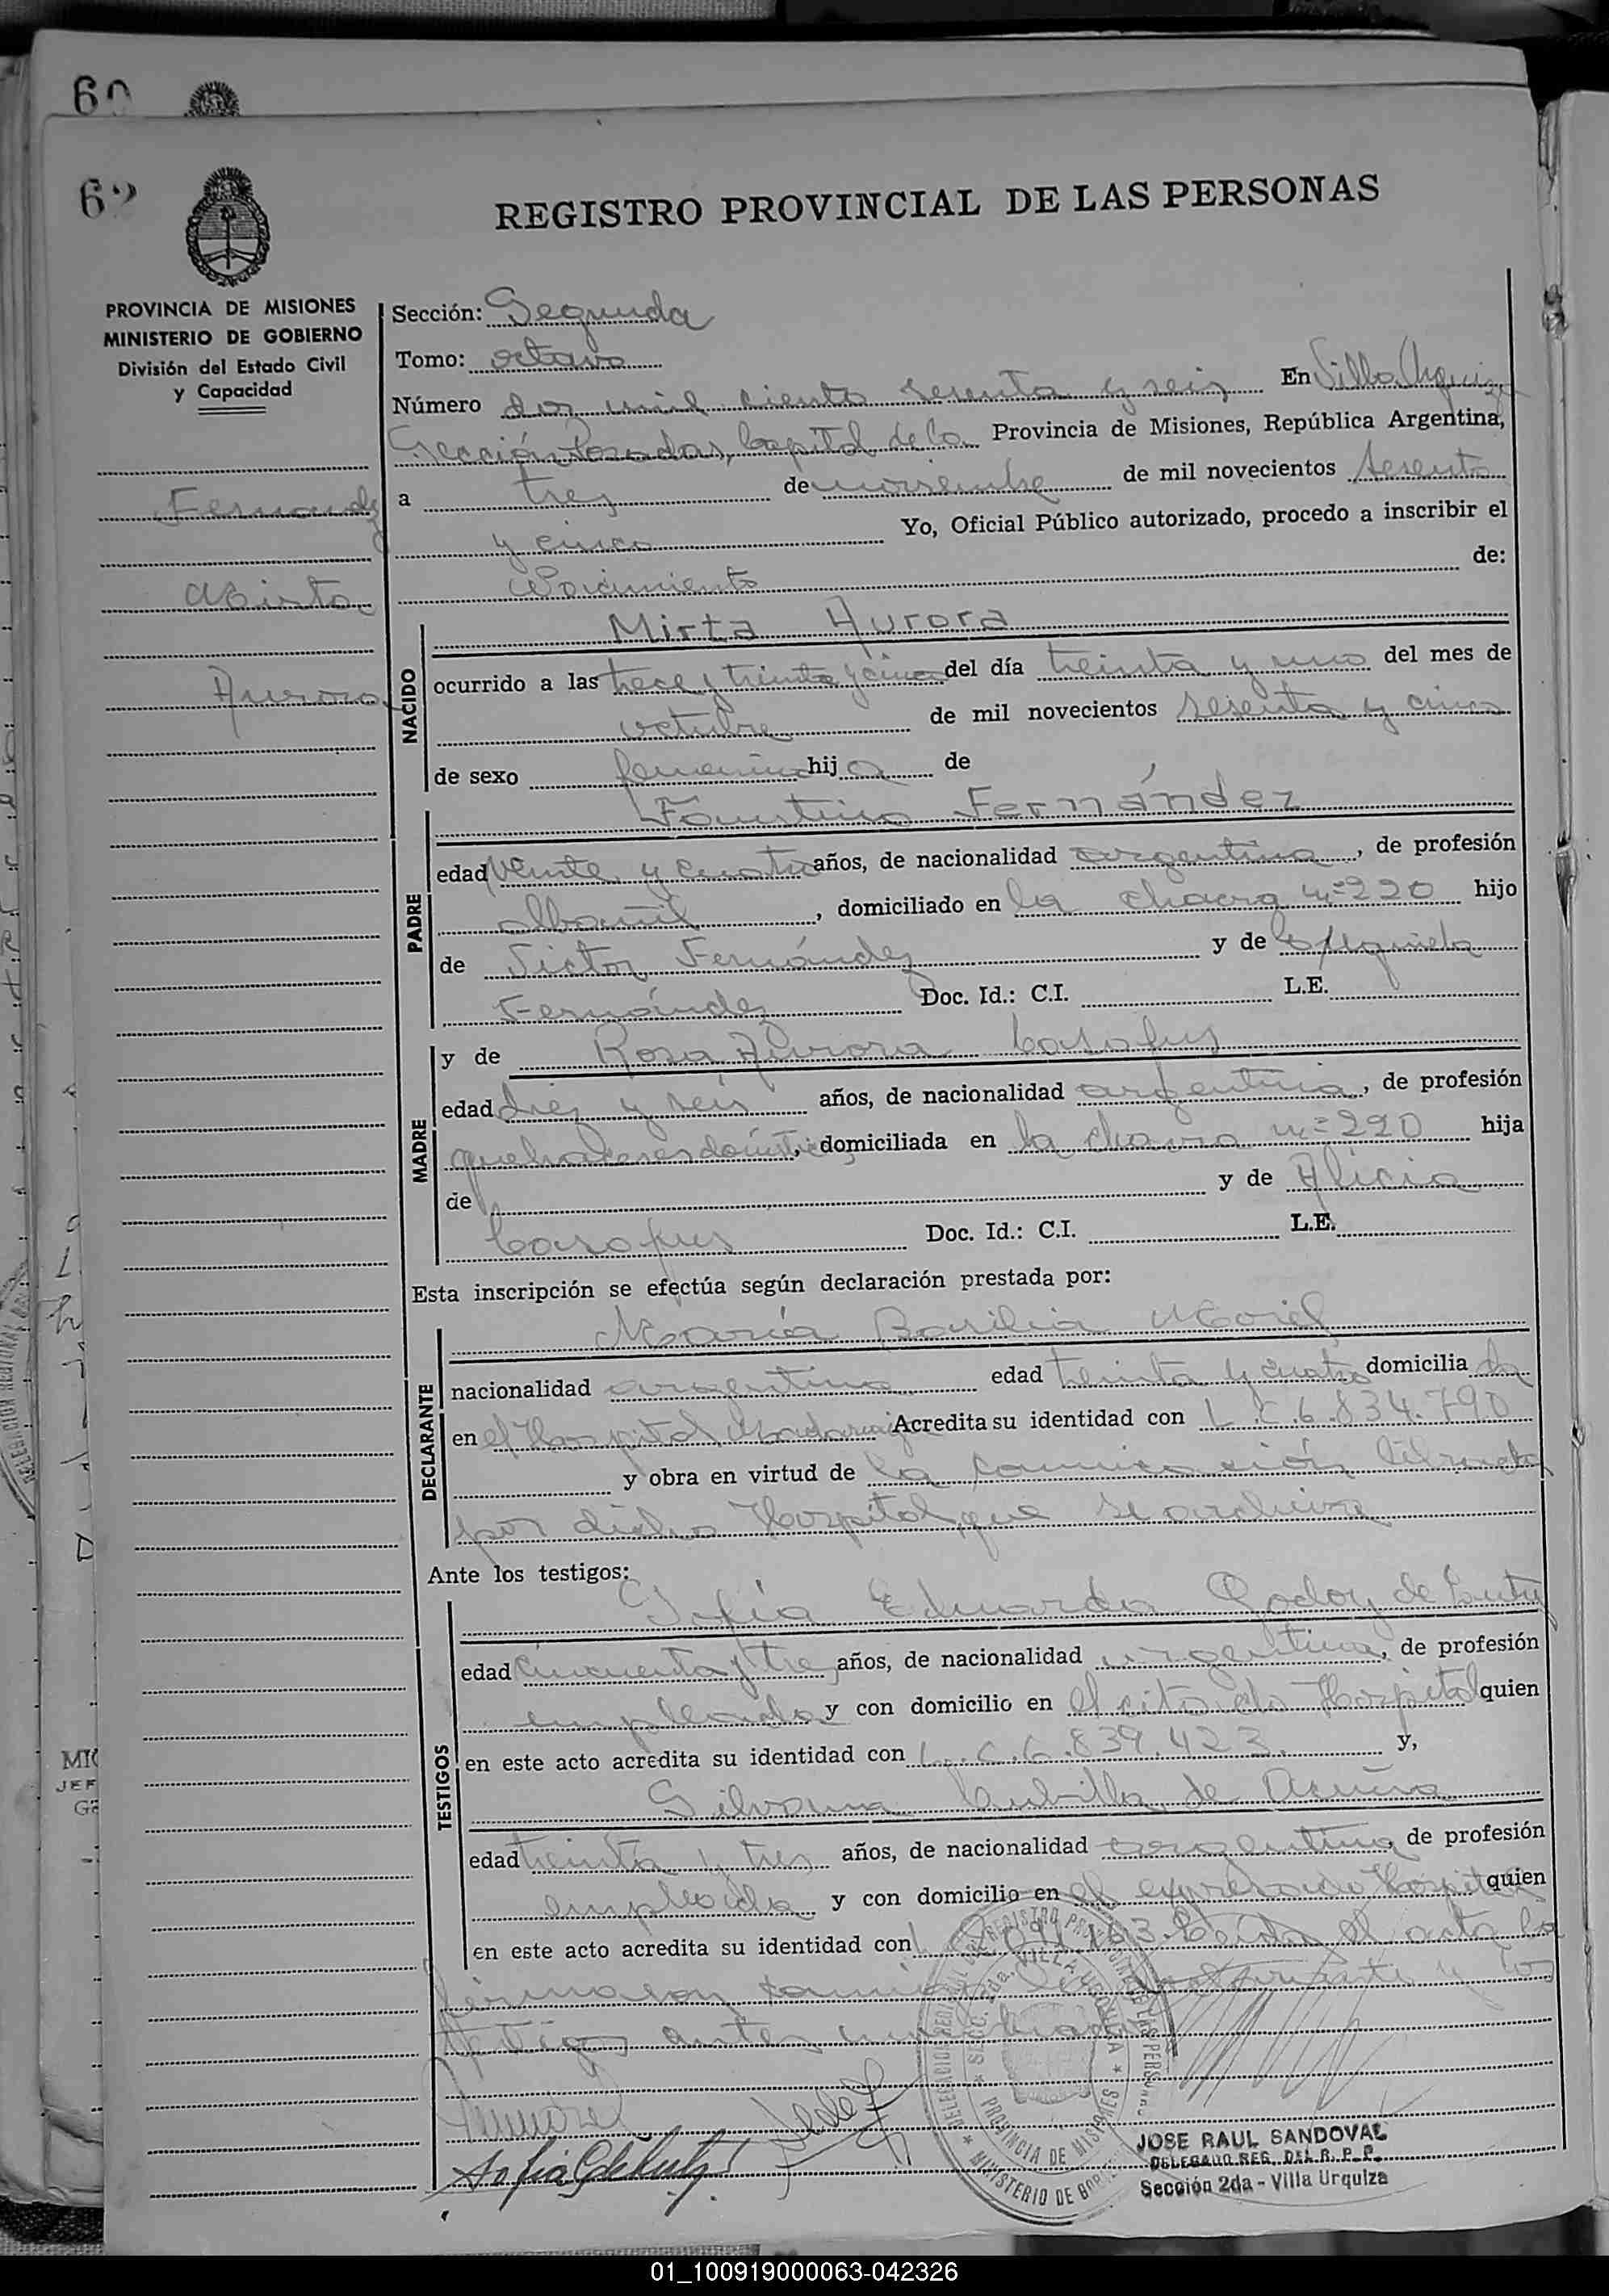 60
62
REGISTRO PROVINCIAL DE LAS PERSONAS
PROVINCIA DE MISIONES
MINISTERIO DE GOBIERNO
División del Estado Civil
y Capacidad
Fernandez
Mirta
Aurora
Sección: Segunda
Tomo: octavo
Número dos mil ciento sesenta y seis En Villa Urquiza
Sección Posadas, Capital de la Provincia de Misiones, República Argentina,
a tres de noviembre de mil novecientos sesenta
y cinco Yo, Oficial Público autorizado, procedo a inscribir el
Nacimiento de:
NACIDO
Mirta Aurora
ocurrido a las trece y treinta y cinco del día treinta y uno del mes de
octubre de mil novecientos sesenta y cinco
de sexo femenino hija de
PADRE
Faustino Fernández
edad veinte y cuatro años, de nacionalidad argentina, de profesión
albañil, domiciliado en la chacra nº 220 hijo
de Victor Fernández y de
Fernández Doc. Id.: C.I. L.E.
MADRE
y de Rosa Aurora
edad diez y seis años, de nacionalidad argentina, de profesión
quehaceres domésticos, domiciliada en la chacra nº 220 hija
de y de Alicia
Doc. Id.: C.I. L.E.
Esta inscripción se efectúa según declaración prestada por:
DECLARANTE
María Basilia Morel
nacionalidad argentina edad treinta y cuatro domiciliada
en el Hospital Madariaga Acredita su identidad con L.C. 6.834.790
y obra en virtud de la comunicación librada
por dicho Hospital que se archiva
Ante los testigos:
TESTIGOS
Sofía Eduarda Godoy de
edad cincuenta y tres años, de nacionalidad argentina, de profesión
empleada y con domicilio en el citado Hospital quien
en este acto acredita su identidad con L.C. 6.839.423. y,
Silvana Cubilla de Acuña
edad treinta y tres años, de nacionalidad argentina de profesión
empleada y con domicilio en el expresado Hospital quien
en este acto acredita su identidad con Leída el acta la
firmaron conmigo la declarante y los
testigos antes nombrados
DELEGACION REGIONAL DEL REGISTRO PROVINCIAL DE LAS PERSONAS
SECC. 2da. VILLA URQUIZA
PROVINCIA DE MISIONES
MINISTERIO DE GOBIERNO
JOSE RAUL SANDOVAL
DELEGADO REG. DEL R. P. P.
Sección 2da - Villa Urquiza
01_100919000063-042326